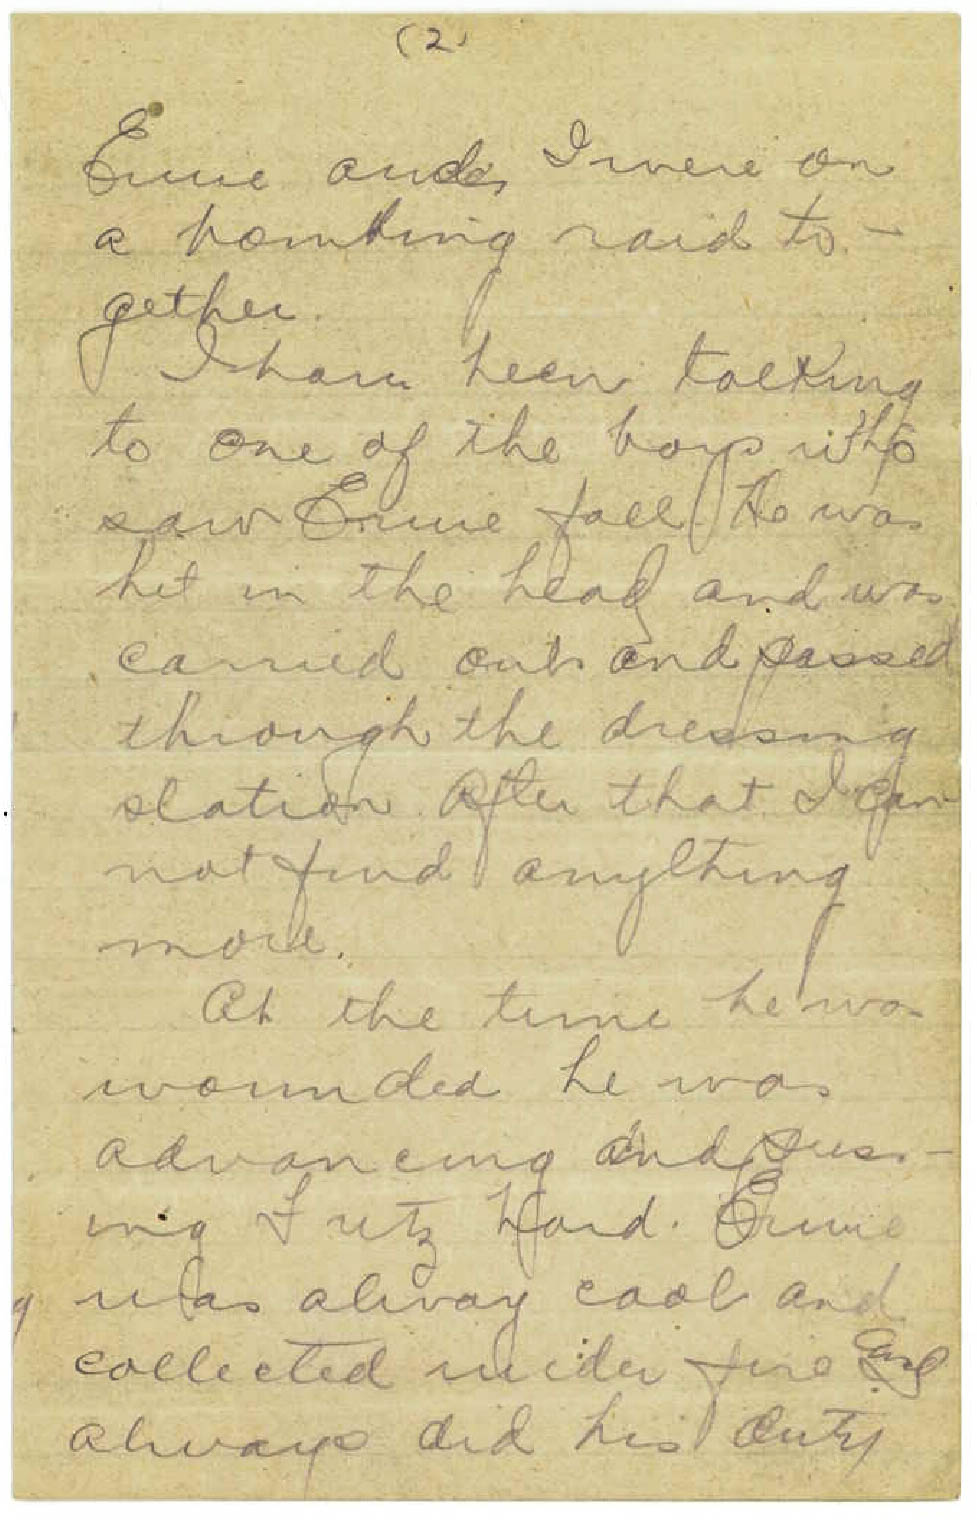 (2)
Ernie and I were on
a bombing raid to-
gether.
I have been talking
to one of the boys who
saw Ernie fall. He was
hit in the head and was
carried out and passed
through the dressing
station. After that I can
not find anything
more.
At the time he was
wounded he was
advancing and press-
ing Fritz hard. Ernie
was alway cool and
collected under fire and
always did his duty